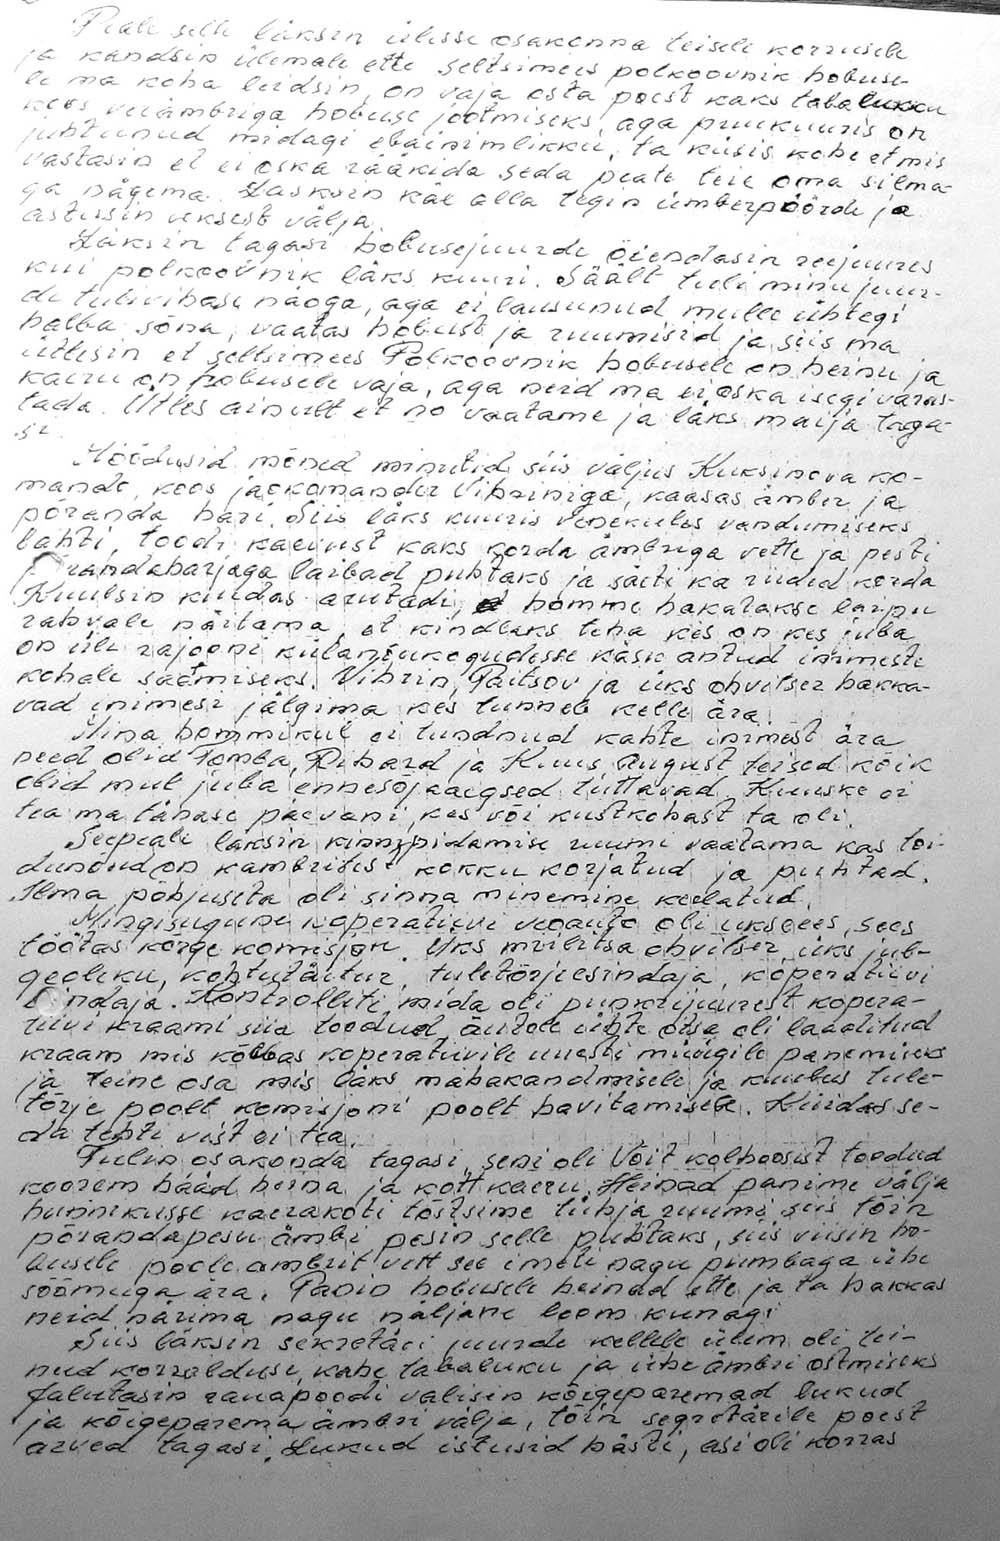 Peale selle läksin ülesse osakonna teisele korrusele
ja kandsin ülemale ette seltsimees polkoovnik hobuse-
le ma koha leidsin, on vaja osta poest kaks tabalukku
koos veeämbriga hobuse jootmiseks, aga puukuuris on
juhtunud midagi ebainimlikku, ta küsis kohe et mis
vastasin et ei oska rääkida seda peate teie oma silma-
ga nägema. Lasksin käe alla tegin ümberpöörde ja
astusin uksest välja.
Läksin tagasi hobusejuurde õiendasin reejuures
kui polkoovnik läks kuuri. Säält tuli minujuur-
de tulivihase näoga, aga ei lausunud mulle ühtegi
halba sõna, vaatas hobust ja ruumisid ja siis ma
ütlesin et seltsimees Polkoovnik hobusele on heinu ja
kaeru on hobusele vaja, aga neid ma ei oska isegi varas-
tada. Ütles ainult et no vaatame ja läks majja taga-
si.
Möödusid mõned minutid siis väljus Kuksinova ko-
mando, koos jaokomander Vihriniga, kaasas ämber ja
põranda hari. Siis läks kuuris venekeeles vandumiseks
lahti, toodi kaevust kaks korda ämbriga vette ja pesti
põrandaharjaga laibad puhtaks ja säeti ka riided korda
Kuulsin kuidas arutadi, homme hakatakse laipu
rahvale näitama, et kindlaks teha kes on kes juba
on üle rajooni külanõukogudesse käsk antud inimeste
kohale saatmiseks. Vihrin, Paitsov ja üks ohvitser hakka-
vad inimesi jälgima kes tunneb kelle ära.
Mina hommikul ei tundnud kahte inimest ära
need olid Tomba, Rihard ja Kuus August teised kõik
olid mul juba ennesõjaaegsed tuttavad. Kuuske ei
tea ma tänase päevani, kes või kustkohast ta oli.
Seepeale läksin kinnipidamise ruumi vaatama kas toi-
dunõud on kambritest kokku korjatud ja puhtad.
Ilma põhjuseta oli sinna minemine keelatud.
Mingisugune koperatiivi veoauto oli ukseees, sees
töötas kõrge komisjon. Üks miilitsa ohvitser, üks jul-
geoleku, kohtutäitur, tuletõrjeesindaja, koperatiivi
esindaja. Kontrolliti mida oli punkrijuurest kopera-
tiivi kraami siia toodud, autole ühte otsa oli laaditud
kraam mis kõlbas koperatiivile uuesti müügile panemiseks
ja teine osa mis läks mahakandmisele ja kuulus tule-
tõrje poolt komisjoni poolt hävitamisele. Kuidas se-
da tehti vist ei tea.
Tulin osakonda tagasi, seni oli Võit kolhoosist toodud
koorem hääd heina ja kott kaeru. Heinad panime välja
hunnikusse kaerakoti tõstsime tühja ruumi, siis tõin
põrandapesu ämbri pesin selle puhtaks, siis viisin ho-
busele poole ämbrit vett see imeti nagu pumbaga ühe
söömuga ära. Panin hobusele heinad ette ja ta hakkas
neid närima nagu näljane loom kunagi
Siis läksin sekretäri juurde kellele ülem oli tei-
nud korralduse, kahe tabaluku ja ühe ämbri ostmiseks
Jalutasin rauapoodi valisin kõigeparemad lukud
ja kõigeparema ämbri välja, tõin segretärile poest
arved tagasi. Lukud istusid hästi, asi oli korras